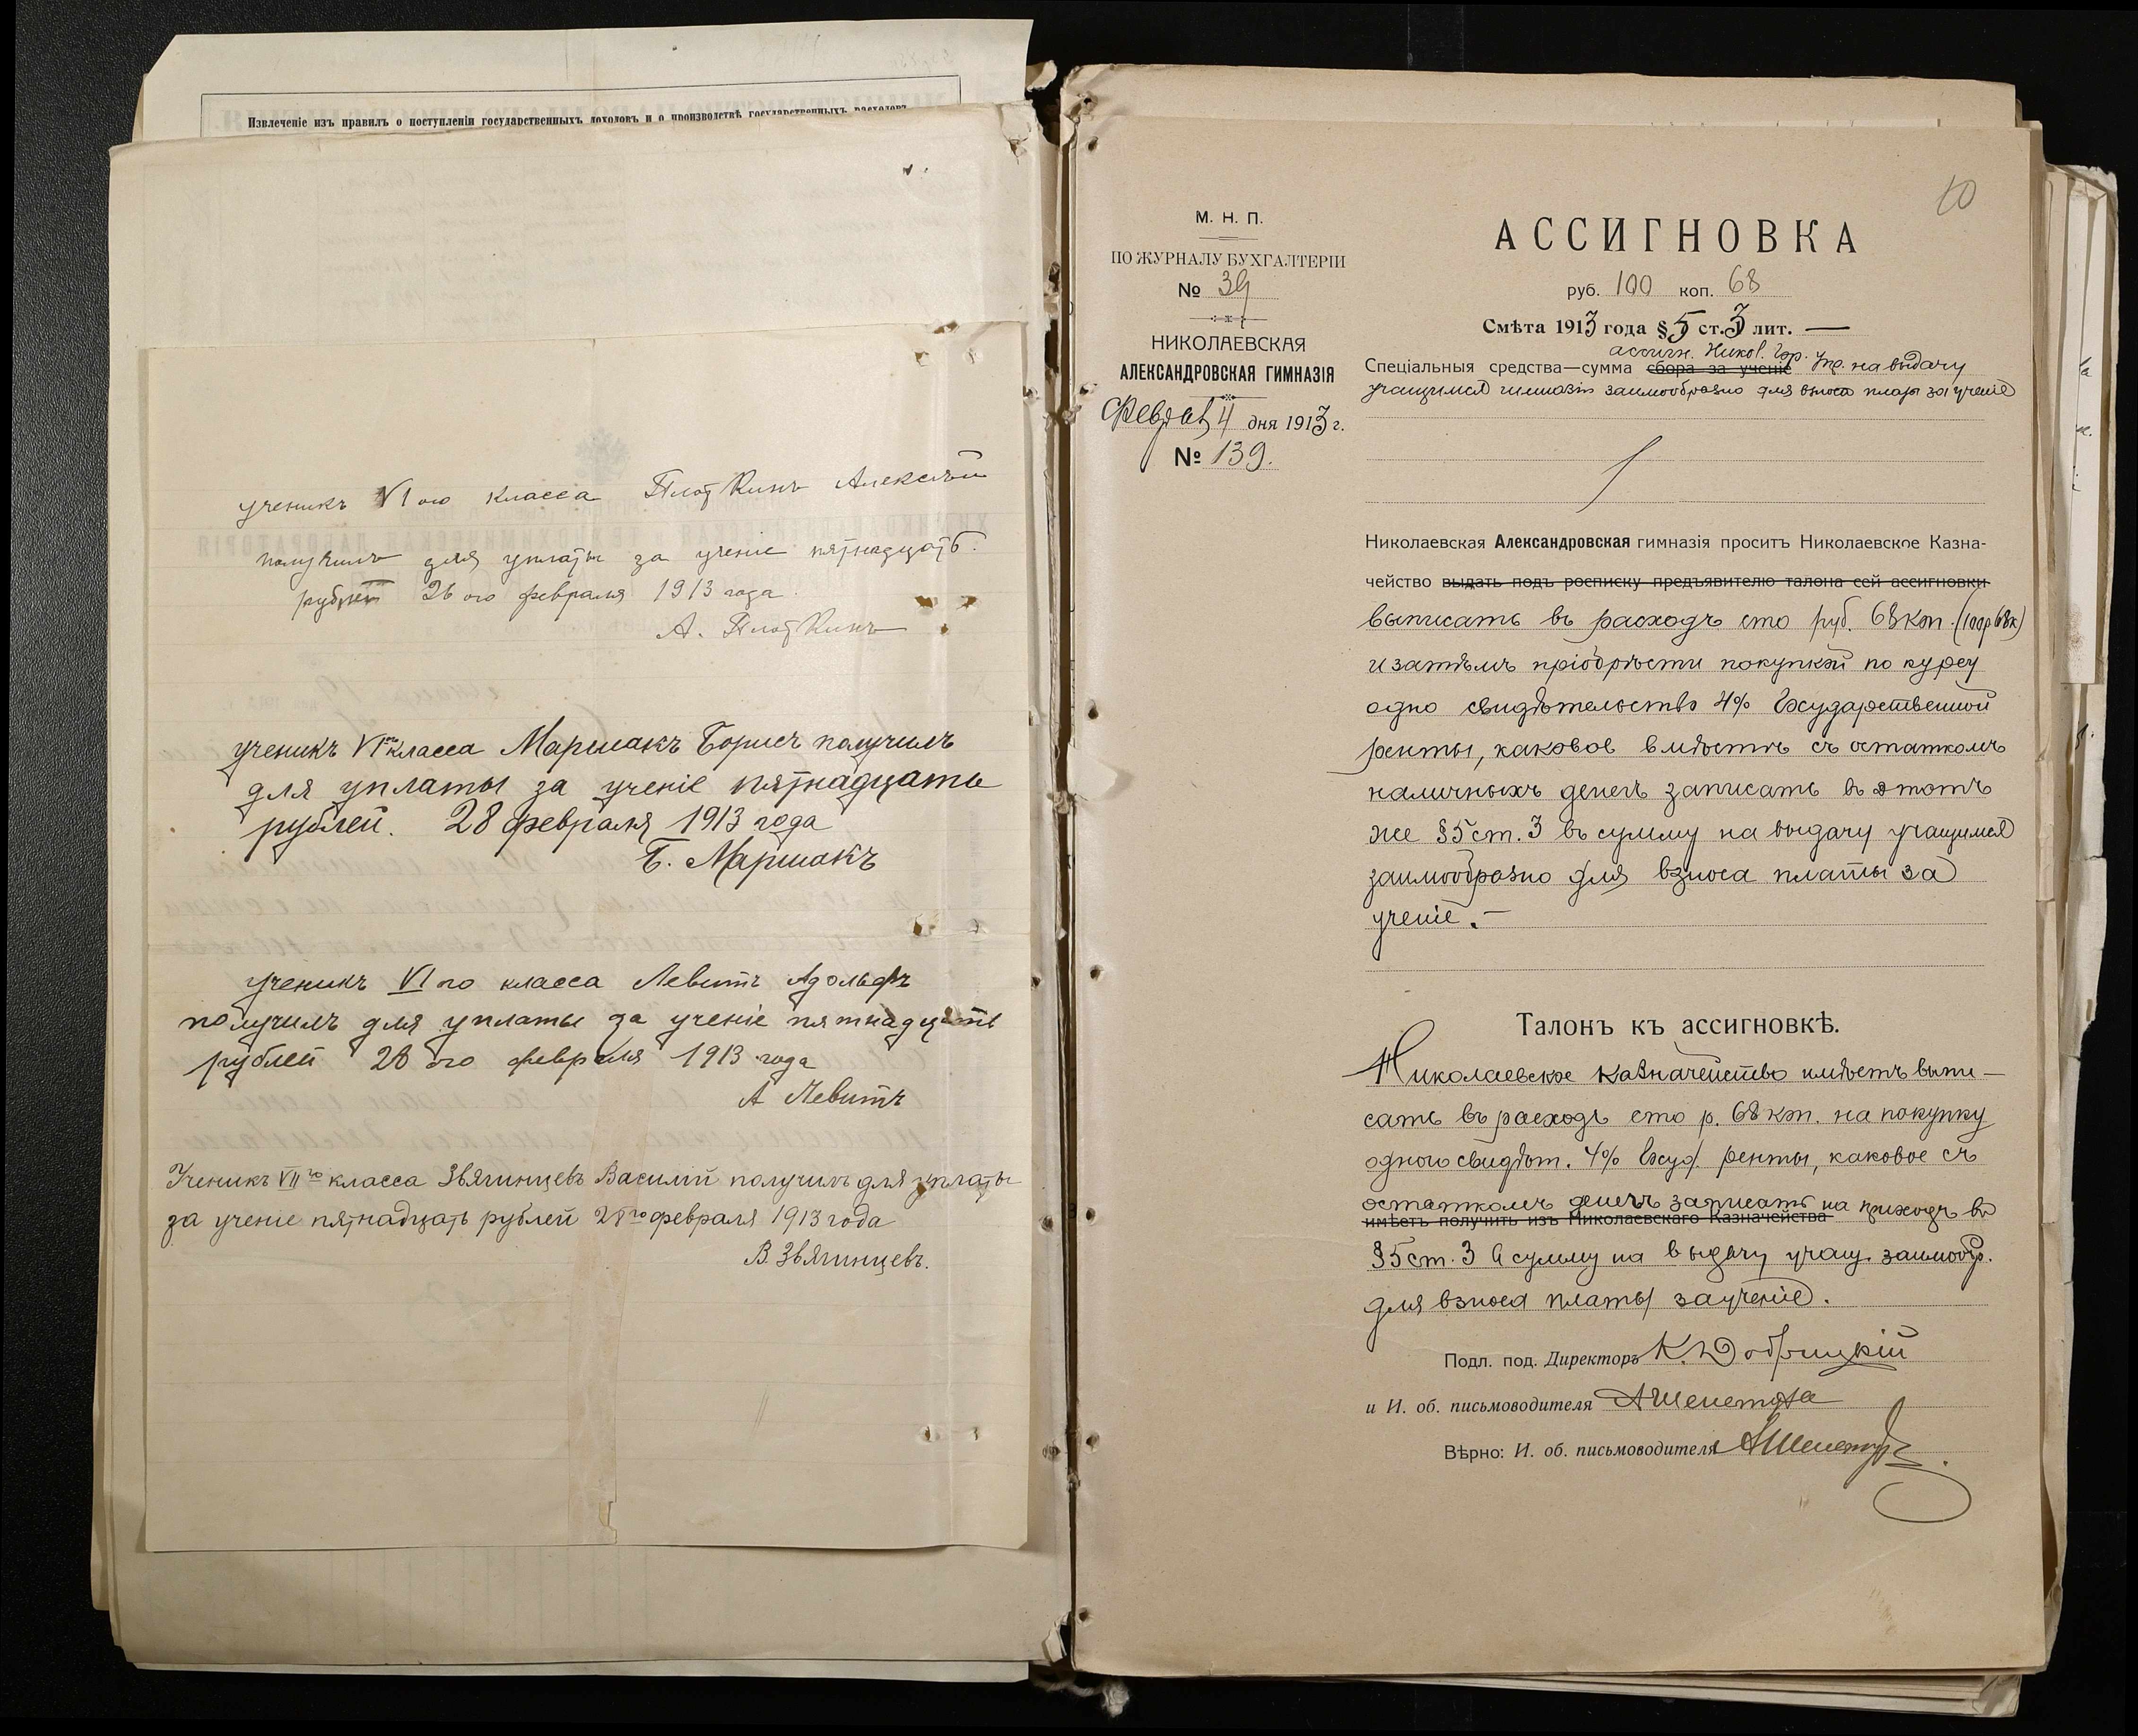 Извлеченіе изъ правилъ о поступленіи государственныхъ доходовъ и о производствѣ государственныхъ расходовъ
ученикъ VIого класса Плоткинъ Алексѣй
получилъ для уплаты за ученіе пятнадцать
рублей 26ого февраля 1913 года.
А. Плоткинъ
ученикъ VIго класса Маршакъ Борисъ получилъ
для уплаты за ученіе пятнадцать
рублей. 28 февраля 1913 года
Б. Маршакъ
ученикъ VIго класса Левитъ Адольфъ
получилъ для уплаты за ученіе пятнадцать
рублей 28го февраля 1913 года
А Левитъ
Ученикъ VIIго класса Звягинцевъ Василій получилъ для уплаты
за ученіе пятнадцать рублей 28го февраля 1913 года
В. Звягинцевъ.
10
М. Н. П.
ПО ЖУРНАЛУ БУХГАЛТЕРІИ
№ 39
НИКОЛАЕВСКАЯ
АЛЕКСАНДРОВСКАЯ ГИМНАЗІЯ
Феврал 4 дня 1913 г.
№ 139.
АССИГНОВКА
руб. 100 коп. 68
Смѣта 1913 года § 5 ст. 3 лит. —
ассигн. Никол. Гор.
Спеціальныя средства—сумма сбора за ученіе Упр. на выдачу
учащимся гимназіи заимообразно для взноса платы за ученіе
Николаевская Александровская гимназія проситъ Николаевское Казна-
чейство выдать подъ росписку предъявителю талона сей ассигновки
выписать въ расходъ сто руб. 68 коп. (100р 68к)
и затѣмъ пріобрѣсти покупкой по курсу
одно свидѣтельство 4% Государственной
ренты, каковое вмѣстѣ съ остаткомъ
наличныхъ денегъ записать въ этотъ
же § 5 ст. 3 въ сумму на выдачу учащимся
заимообразно для взноса платы за
ученіе. —
Талонъ къ ассигновкѣ.
Николаевское казначейство имѣетъ выпи-
сать въ расходъ сто р. 68 коп. на покупку
одного свидѣт. 4% Госуд. ренты, каковое съ
остаткомъ денегъ записать на приходъ въ
имѣетъ получить изъ Николаевскаго Казначейства
§ 5 ст. 3 в сумму на выдачу учащ. заимообр.
для взноса платы за ученіе.
Подл. под. Директоръ К. Добрицкій
и И. об. письмоводителя А Шепетуха
Вѣрно: И. об. письмоводителя